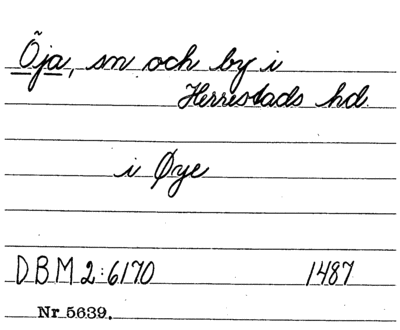 Öja, sn och by i
Herrestads hd.
i Øye
DBM 2:6170 1487
Nr 5639.